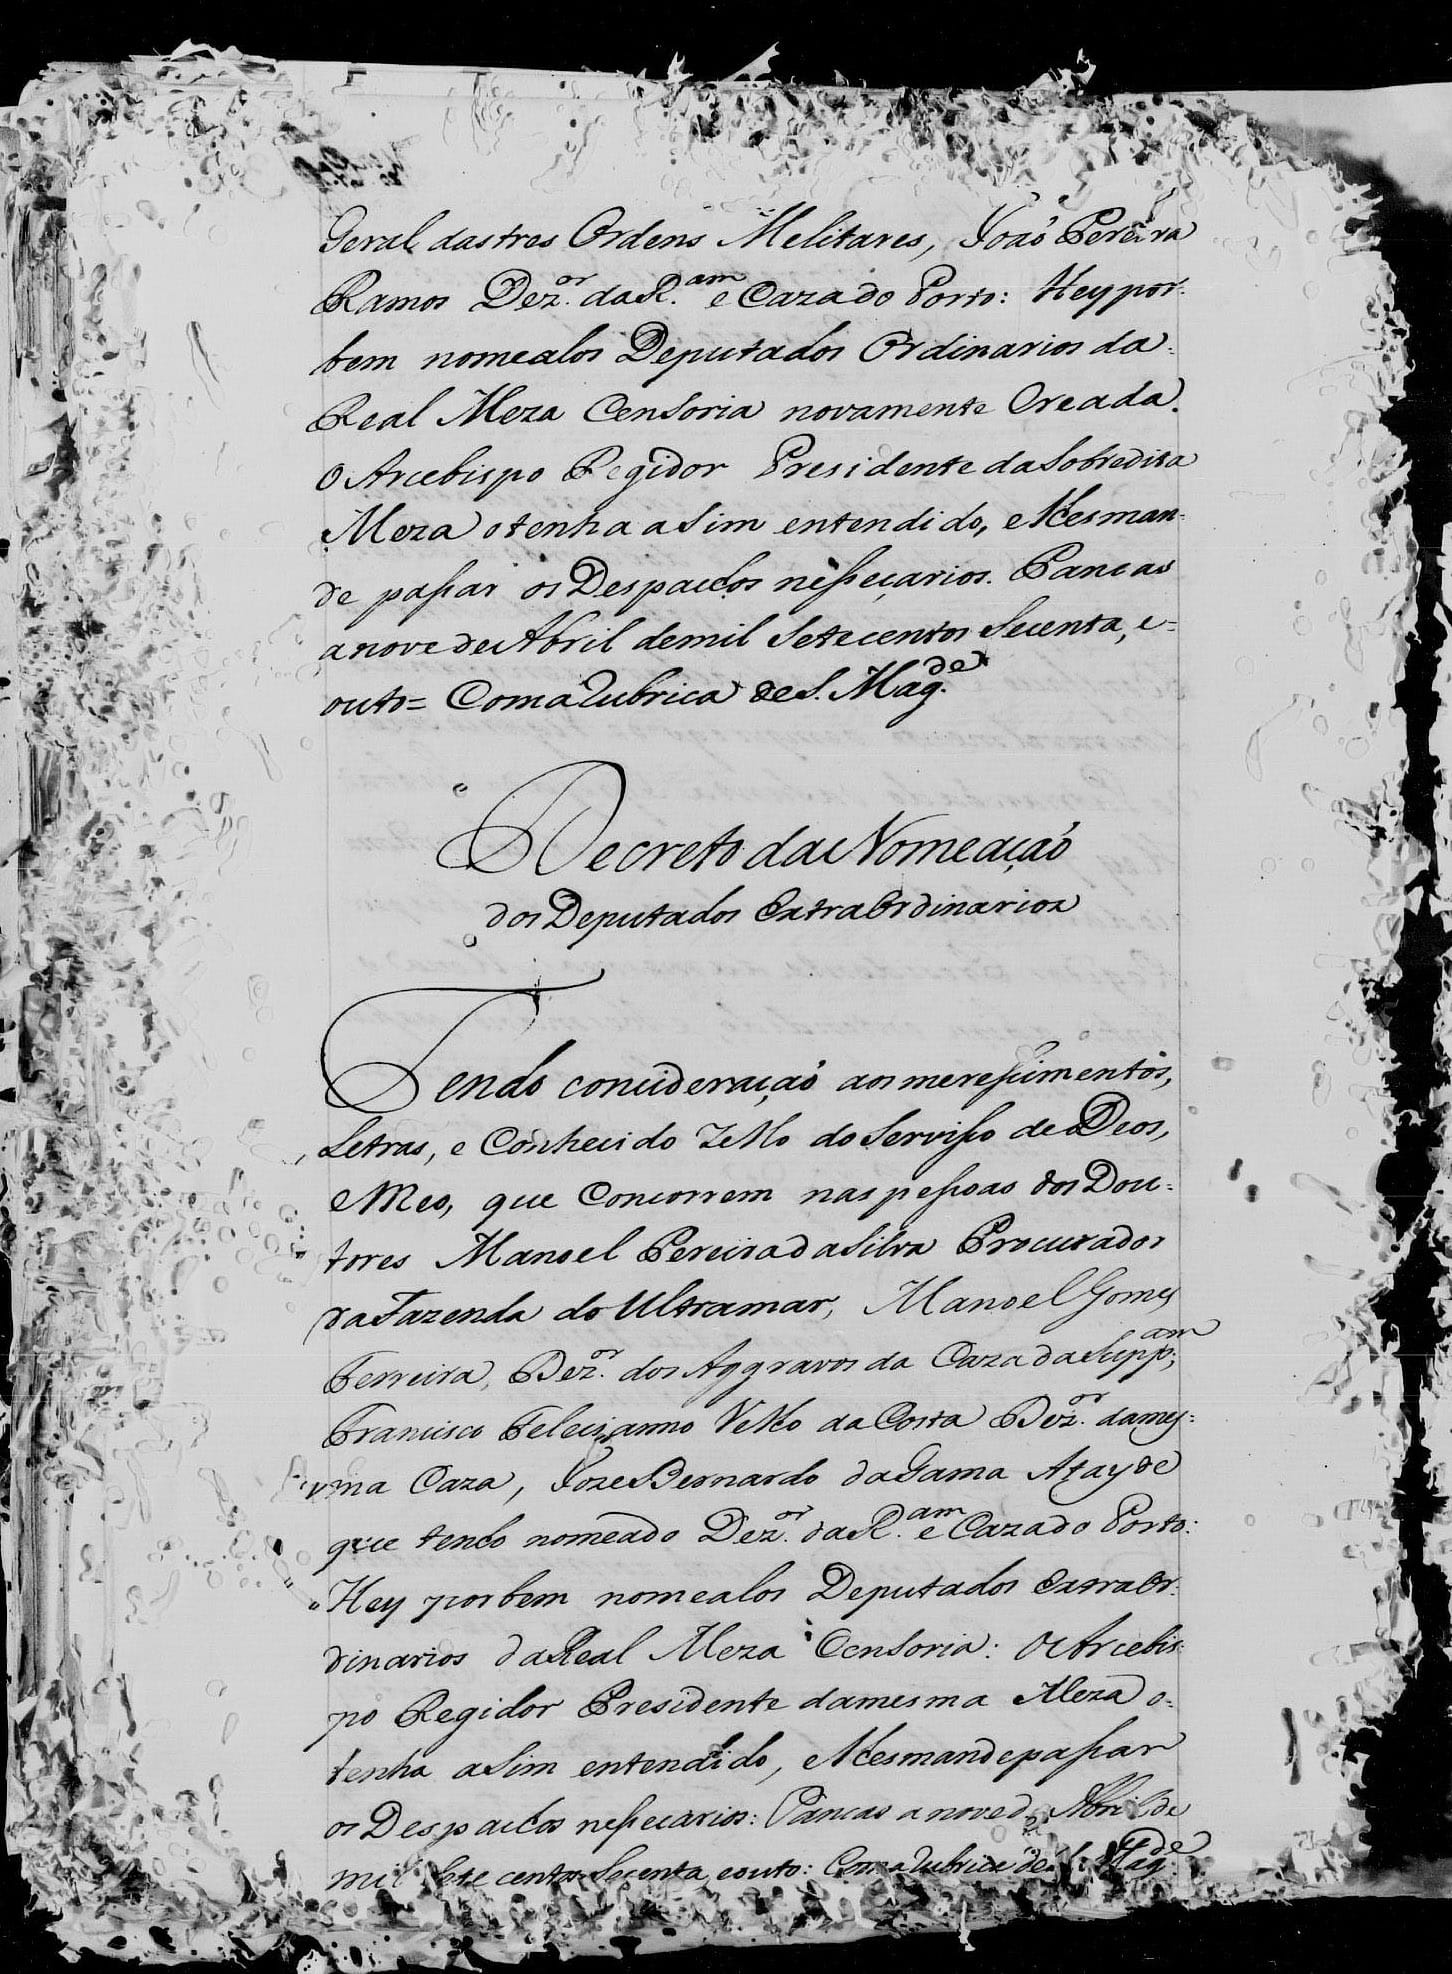 Geral das tres Ordens Melitares, João Pereira
Ramos Dez.or da R.am e Caza do Porto: Hey por
bem nomealos Deputados Ordinarios da
Real Meza Censoria novamente Creada.
O Arcebispo Regidor Presidente da Sobredita
Meza o tenha asim entendido, e lhes man-
de passar os Despachos nesseçarios. Pancas
a nove de Abril de mil Setecentos Secenta, e=
outo= Com a Rubrica de S. Mag.de
Decreto da Nomeação
dos Deputados ExtraOrdinarios
Tendo concideração aos meressimentos,
Letras, e Conhecido Zello do Servisso de Deos,
e Meo, que Concorrem nas pessoas dos Dou-
tores Manoel Pereira da Silva Procurador
da Fazenda do Ultramar, Manoel Gomes
Ferreira, Dez.or dos Aggravos da Caza da Supp.am;
Francisco Felecianno Velho da Costa Dez.or da mes-
ma Caza, Joze Bernardo da Gama Atayde
que tenho nomeado Dez.or da R.am e Caza do Porto:
Hey por bem nomealos Deputados ExtraOr-
dinarios da Real Meza Censoria: O Arcebis-
po Regidor Presidente da mesma Meza o-
tenha asim entendido, e lhes mande passar
os Despachos nessecarios: Pancas a nove de Abril de
mil Sete centos Secenta, e outo: Com a Rubrica de S. Mag.de